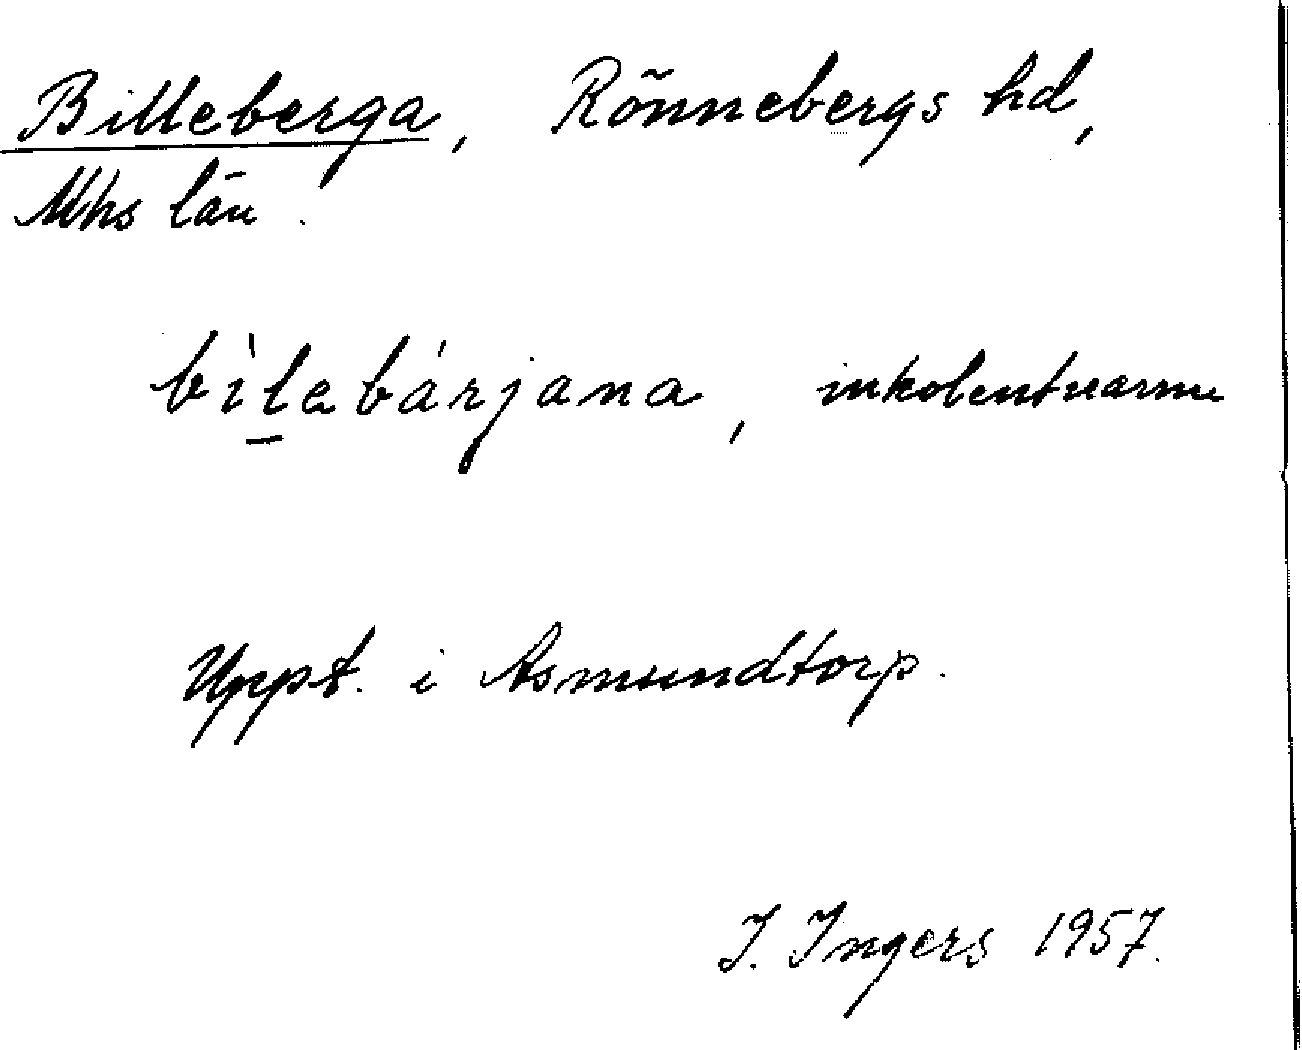 Billeberga, Rönnebergs hd,
Mhs län.
bìlebárjana, inkolentnamn
Uppt. i Asmundtorp.
I. Ingers 1957.